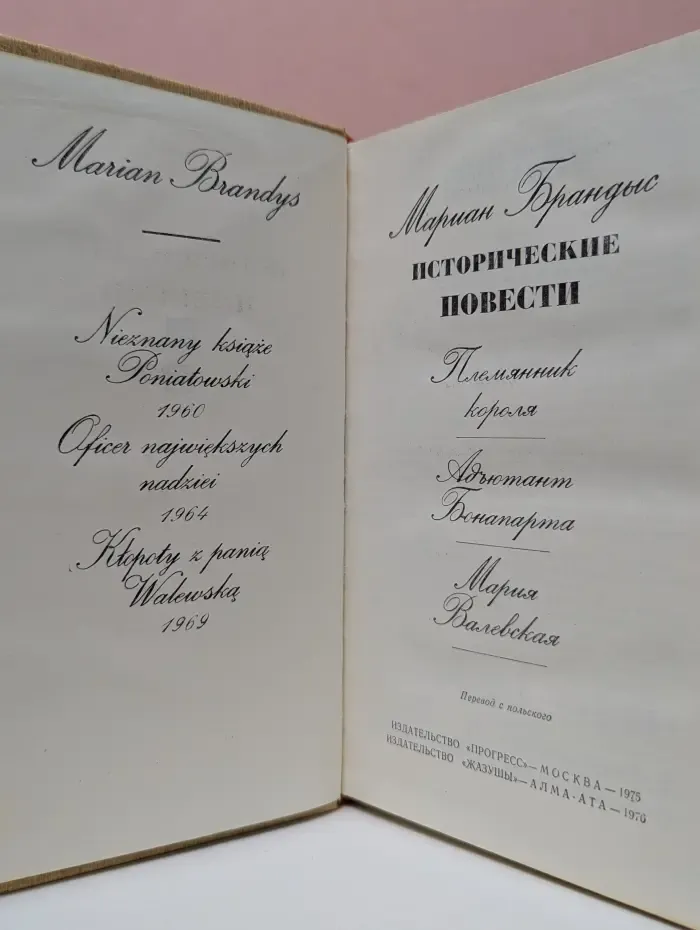 Marian Brandys
Nieznany książe
Poniatowski
1960
Oficer największych
nadziei
1964
Kłopoty z panią
Walewską
1969
Мариан Брандыс
ИСТОРИЧЕСКИЕ
ПОВЕСТИ
Племянник
короля
Адъютант
Бонапарта
Мария
Валевская
Перевод с польского
ИЗДАТЕЛЬСТВО «ПРОГРЕСС»—МОСКВА—1975
ИЗДАТЕЛЬСТВО «ЖАЗУШЫ»—АЛМА-АТА—1976